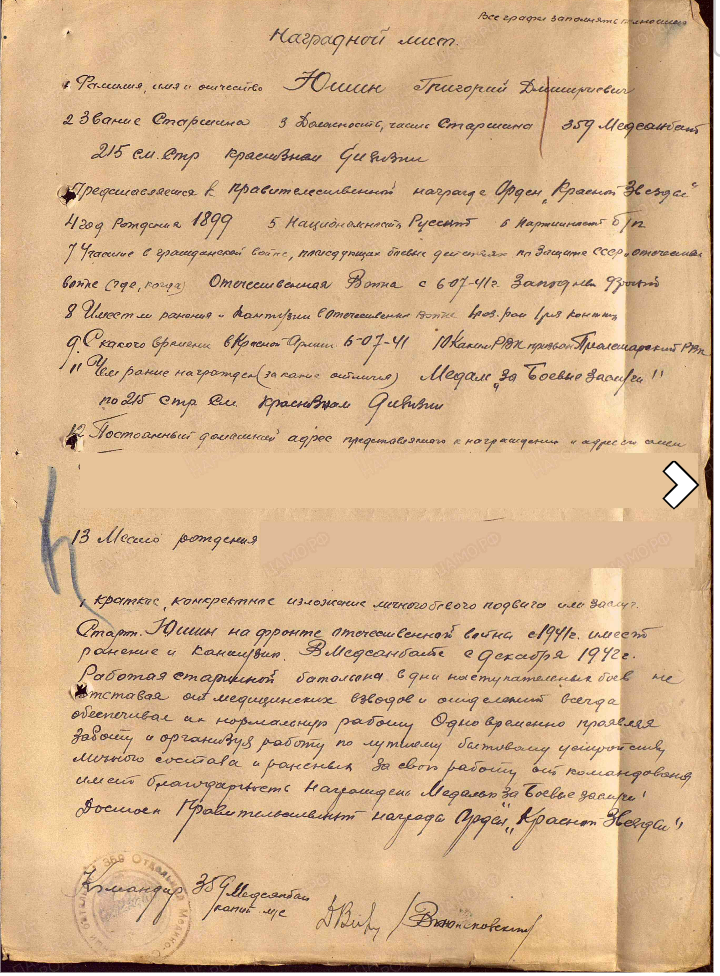 Все графы заполнять полностью
Наградной лист.
1 Фамилия, имя и отчество Юшин Григорий Дмитриевич
2 Звание Старшина 3 Должность, часть Старшина 359 Медсанбат
215 см. стр краснознам Дивизии
Представляется к правительственной награде Орден "Красной Звезды"
4 год Рождения 1899 5 Национальность Русский 6 Партийность б/п
7 Участие в гражданской войне, последующих боевых действиях по защите СССР и отечествен
войне (где, когда) Отечественная Война с 6-07-41г. Западный фронт
8 Имеет ли ранения и контузии в отечественной войне
9 С какого времени в Красной Армии 6-07-41 10 Каким РВК призван Пролетарский РВК
11 Чем ранее награжден (за какие отличия) Медаль "За Боевые Заслуги"
по 215 стр. см. краснознам Дивизии
12 Постоянный домашний адрес представляемого к награждению и адрес его семьи
13 Место рождения
1 краткое, конкретное изложение личного боевого подвига или заслуг.
Старш. Юшин на фронте отечественной война с 1941г. имеет
ранение и Контузию. В Медсанбате с декабря 1942г.
Работая старшиной батальона в дни наступательных боев не
отставая от медицинских взводов и отделений всегда
обеспечивал их нормальную работу Одновременно проявляя
Заботу и организуя работу по лучшему бытовому устройству
личного состава и раненых За свою работу от командования
имеет благодарность Награжден Медалью За Боевые заслуги
Достоин Правительствен награда Орден "Красной Звезды"
Командир 359 Медсанбат
капит м/с
/Войсковский/
359 Отдельный Медико-С